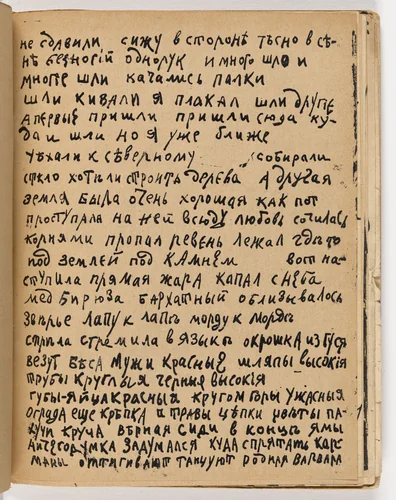 не сдавили сижу в сторонѣ тѣсно в сѣ-
нѣ безногій однорук и много шло и
многе шли качались палки
шли кивали я плакал шли другіе
а первые пришли пришли сюда ку-
да и шли но я уже ближе
уѣхали к сѣверному собирали
сткло хотѣли строить дерева А другая
земля была очень хорошая как пот
проступала на ней всюду любовь сочилась
корнями пропал ревень лежал гдѣто
под землей под камнем вот на-
ступила прямая жара капал с неба
мед бирюза бархатный облизывалось
звѣрье лапу к лапѣ морду к мордѣ
стрѣла стремила в язык окрошка из гуся
везут бѣса мужи красные шляпы высокія
трубы круглыя черныя высокія
губы-яйца красный кругом горы ужасныя
ограда еще крѣпка и травы цѣпки цвѣты па-
хучи круча вѣрная сиди в концѣ ямы
задумался куда спрятать кар-
маны оттягивают танцуют родная варвар